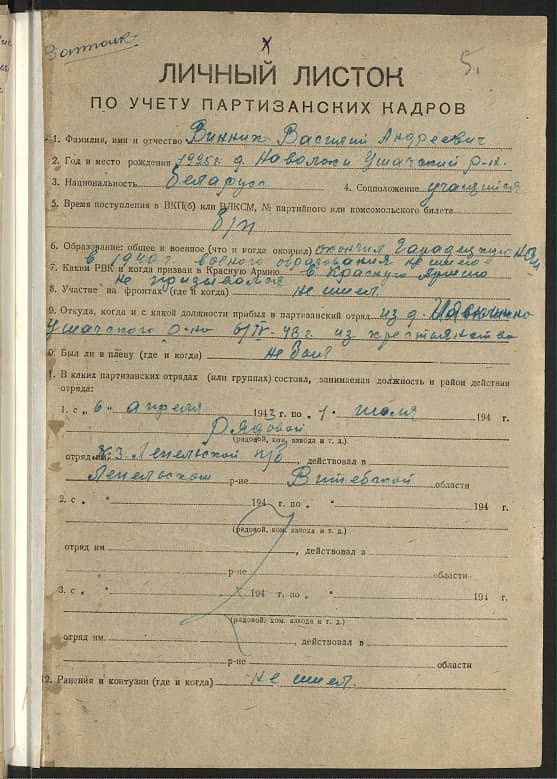 5.
ЛИЧНЫЙ ЛИСТОК
ПО УЧЕТУ ПАРТИЗАНСКИХ КАДРОВ
1. Фамилия, имя и отчество Винник Василий Андреевич
2. Год и место рождения 1925 г. д. Наволоки Ушачский р-н.
3. Национальность беларусс 4. Соцположение учащийся
5. Время поступления в ВКП(б) или ВЛКСМ, № партийного или комсомольского билета
б/п
6. Образование: общее и военное (что и когда окончил) окончил
в 1940 г. военного образования не имею
7. Каким РВК и когда призван в Красную Армию в Красную Армию
не призывался
8. Участие на фронтах (где и когда) не имел.
9. Откуда, когда и с какой должности прибыл в партизанский отряд из д.
Ушачского р-на 6/IV-43 г. из крестьянства
0. Был ли в плену (где и когда) не был
1. В каких партизанских отрядах (или группах) состоял, занимаемая должность и район действия
отряда:
1. с „ 6 " апреля 1943 г. по „ 1 " июля 194 г.
рядовой
(рядовой, ком. взвода и т. д.)
отряд № 3. Лепельской п/б, действовал в
Лепельском р-не Витебской области
2. с „ " 194 г. по „ " 194 г.
(рядовой, ком. взвода и т. д.)
отряд им , действовал в
р-не области
3. с „ " 194 г. по „ " 194 г.
(рядовой, ком. взвода и т. д.)
отряд им. , действовал в
р-не области
12. Ранения и контузии (где и когда) не имел.